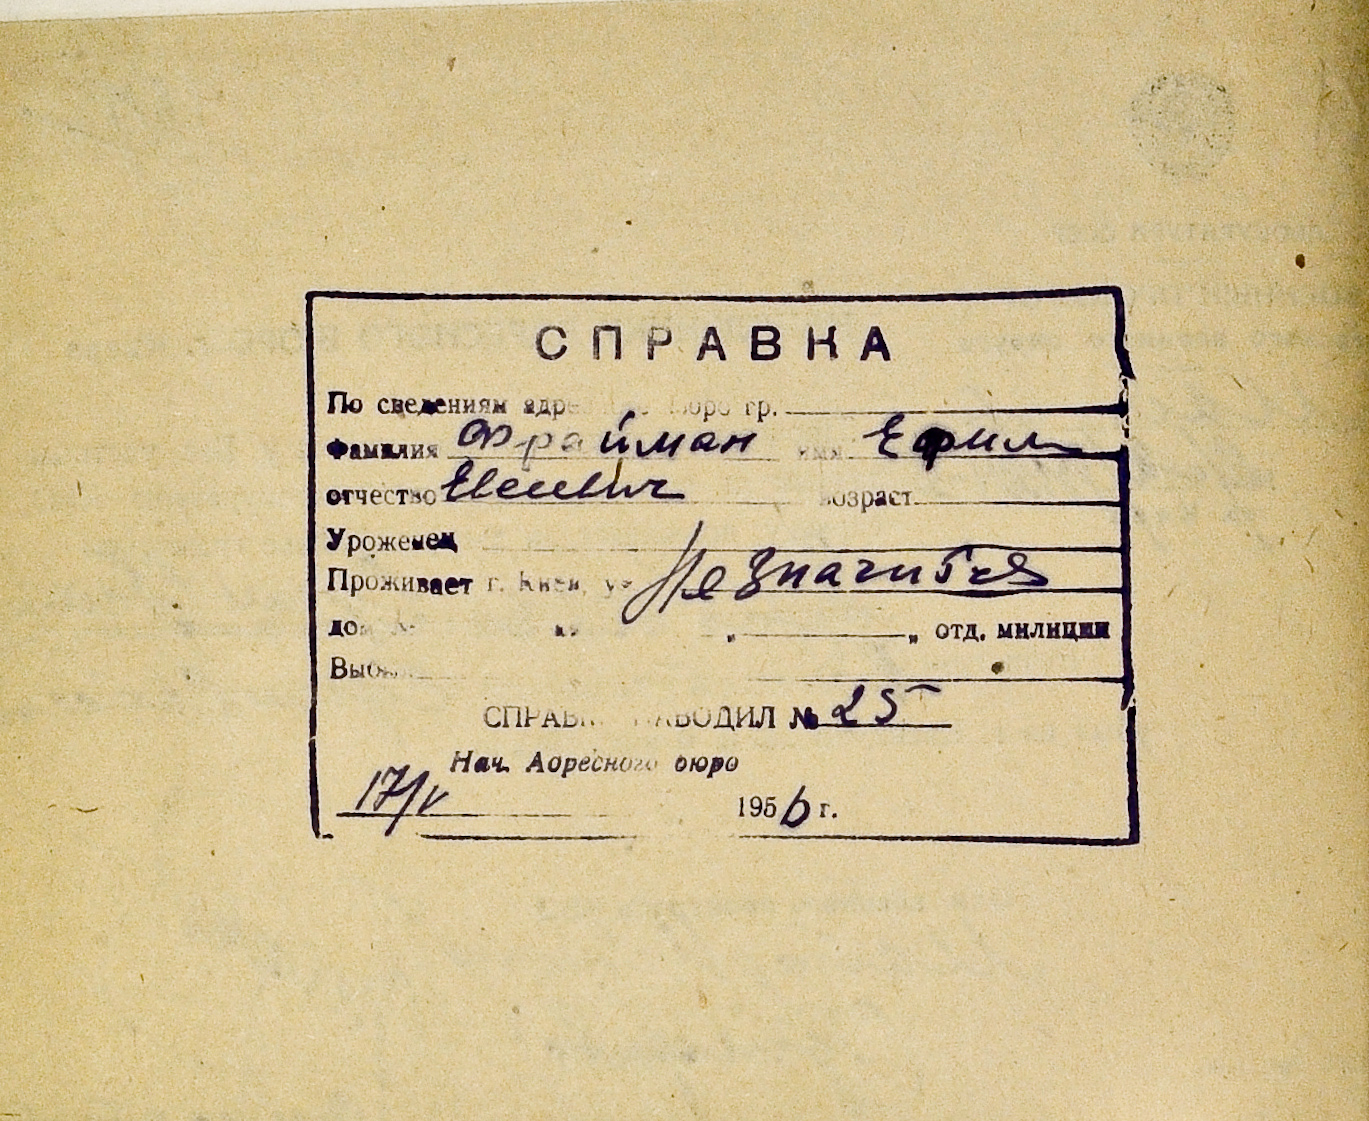 СПРАВКА
По сведениям адре бюро гр.
Фамилия Фрайман имя Ефим
отчество возраст
Уроженец
Проживает г. Киев, ул Не значится
до „ „ отд. милиции
Выб
СПРАВК НАВОДИЛ № 25
Нач. Адресного бюро
17/V 1956 г.